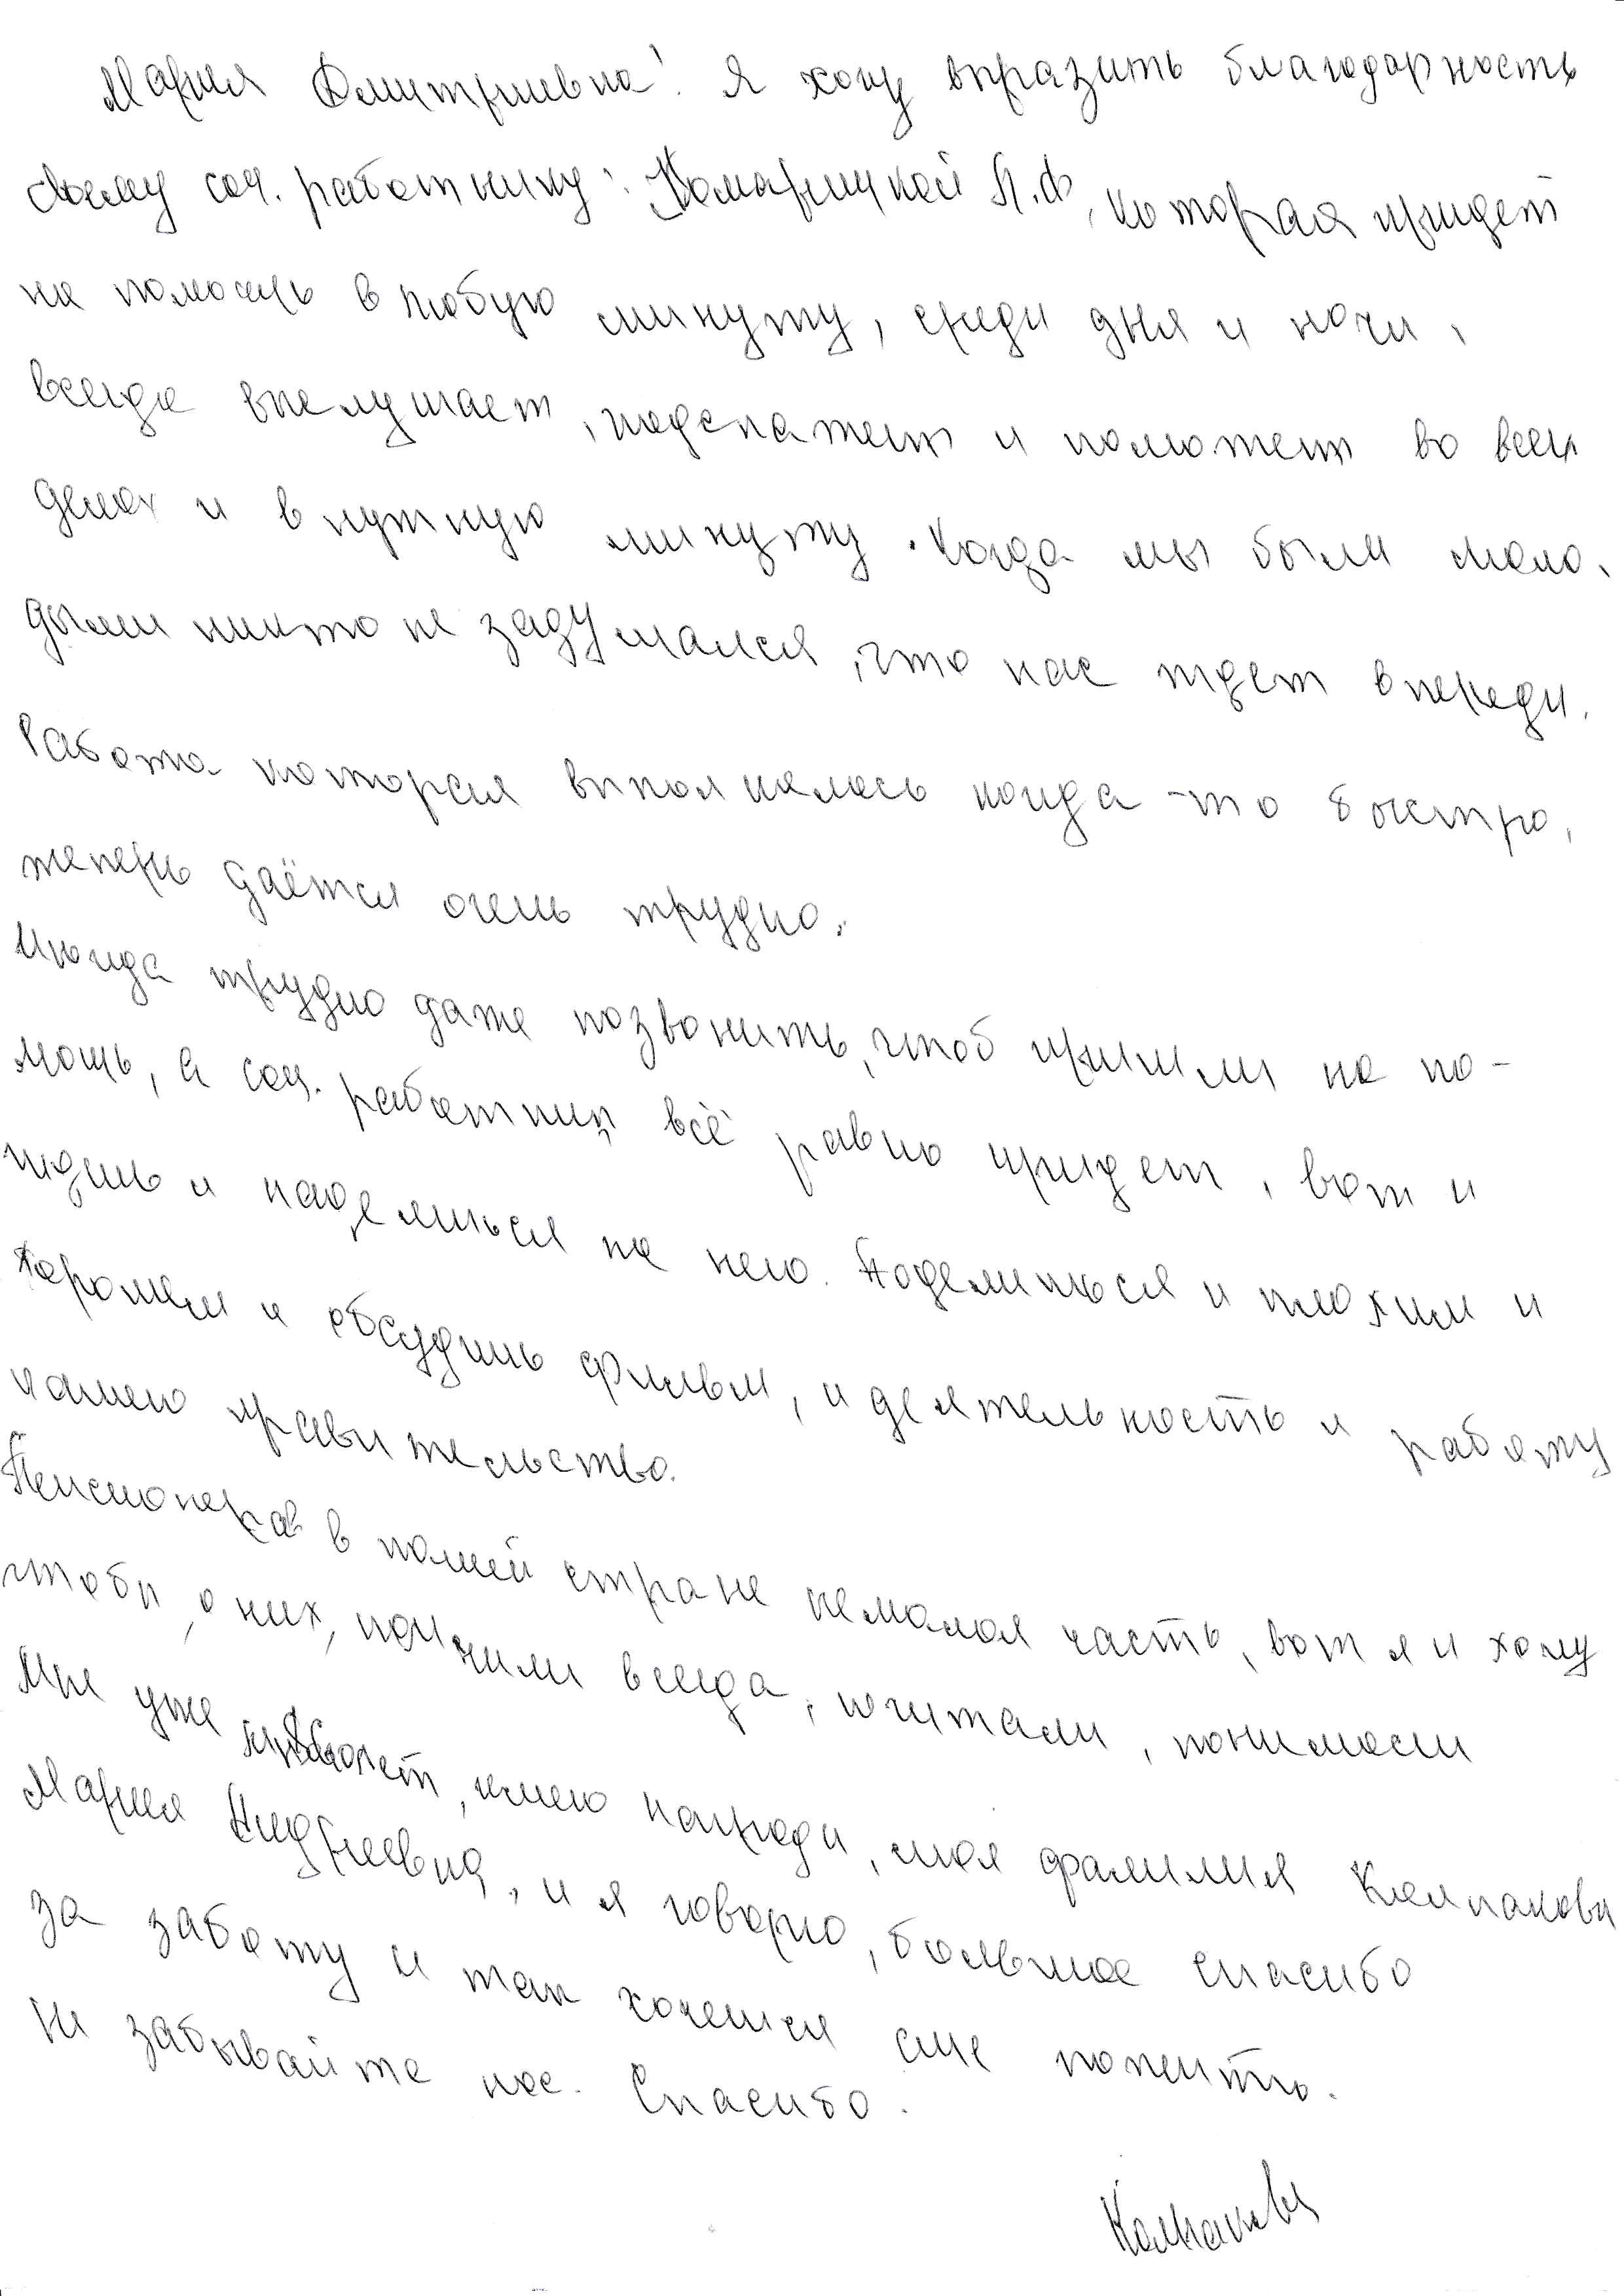 Мария Дмитриевна! Я хочу выразить благодарность
своему соц. работнику: Комарицкой Л.Ф, которая придет
на помощь в любую минуту, среди дня и ночи,
всегда выслушает, подскажет и поможет во всех
делах и в нужную минуту. Когда мы были моло-
дыми никто не задумался, что нас ждет впереди.
Работа которая выполнялась когда-то быстро,
теперь даётся очень трудно.
Иногда трудно даже позвонить, чтоб пришли на по-
мощь, а соц. работник всё равно придет, вот и
ждешь и надеешься на него. Поделиться и плохим и
хорошем и обсудишь фильм, и деятельность и работу
нашего правительства.
Пенсионеров в нашей стране немалая часть, вот я и хочу
чтобы о них, помнили всегда, почитали, понимали
Мне уже лет, имею награды, моя фамилия Колпакова
Мария Андреевна, и я говорю, большое спасибо
за заботу и так хочется еще пожить.
Не забывайте нас. Спасибо.
Колпакова